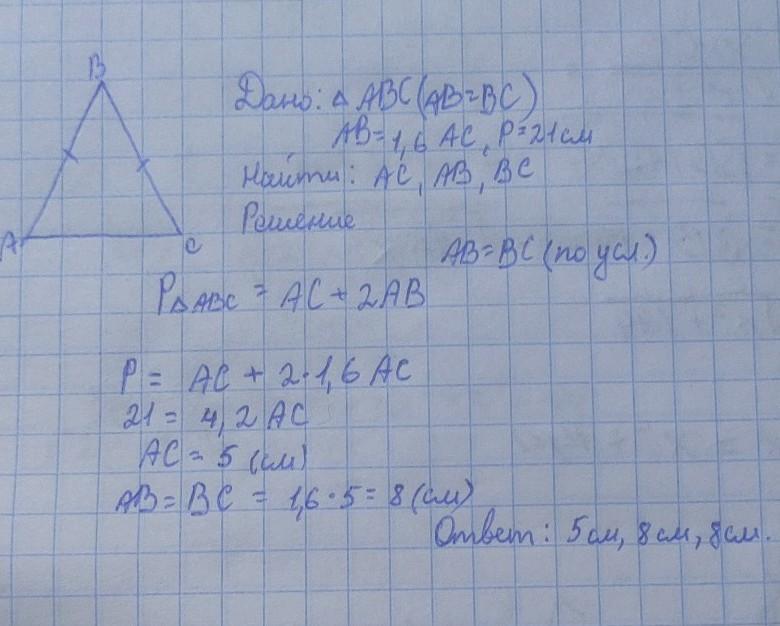 B
A
C
Дано: △ ABC (AB=BC)
AB=1,6 AC, P=21см
Найти: AC, AB, BC
Решение
AB=BC (по усл.)
P△ABC = AC + 2AB
P = AC + 2·1,6 AC
21 = 4,2 AC
AC = 5 (см)
AB = BC = 1,6·5 = 8 (см)
Ответ: 5см, 8см, 8см.